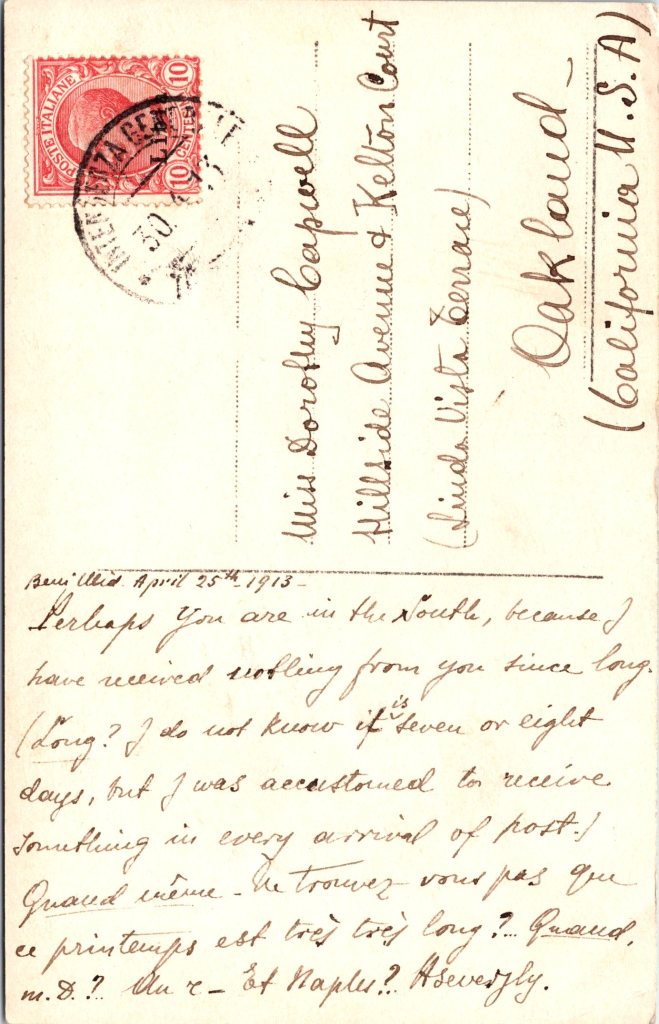 POSTE ITALIANE
10
CENTES
10
INTEN
30
13
Miss Dorothy Capwell
Hillside Avenue & Kelton Court
(Linda Vista Terrace)
Oakland -
(California U.S.A)
April 25th 1913 -
Perhaps you are in the South, because I
have received nothing from you since long.
(Long? I do not know if is seven or eight
days, but I was accustomed to receive
something in every arrival of post.)
Quand même - Ne trouvez-vous pas que
ce printemps est très très long?.. Quand,
m. D.? - Et Naples?